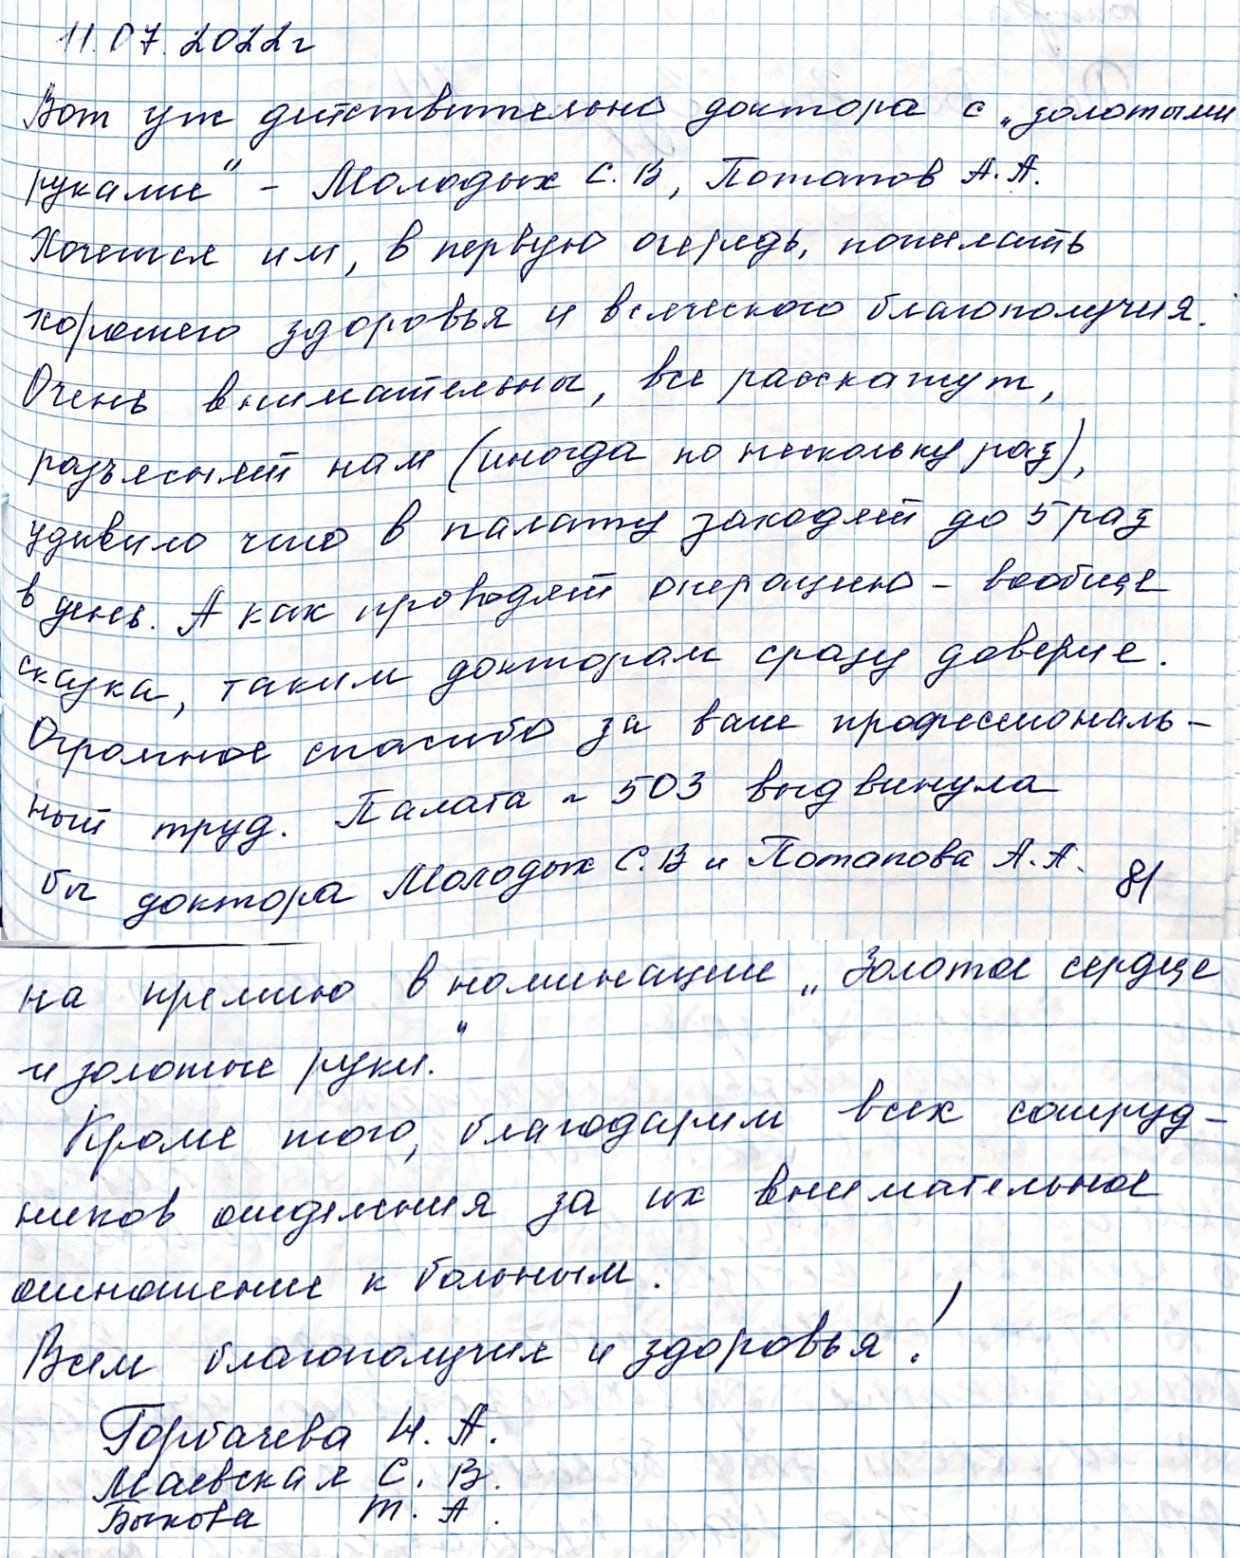 11.07.2022г
Вот уж действительно доктора с „золотыми
руками" - Молодых С.В, Потапов А.А.
Хочется им, в первую очередь, пожелать
хорошего здоровья и всяческого благополучия.
Очень внимательны, все расскажут,
разъяснят нам (иногда по нескольку раз),
удивило что в палату заходят до 5 раз
в день. А как проводят операцию - вообще
сказка, таким докторам сразу доверие.
Огромное спасибо за ваш профессиональ-
ный труд. Палата ~ 503 выдвинула
бы доктора Молодых С.В и Потапова А.А.
81
на премию в номинации „Золотое сердце
и золотые руки."
Кроме того, благодарим всех сотруд-
ников отделения за их внимательное
отношение к больным.
Всем благополучия и здоровья!
Горбачева Н.А.
Маевская С.В.
Быкова Т.А.